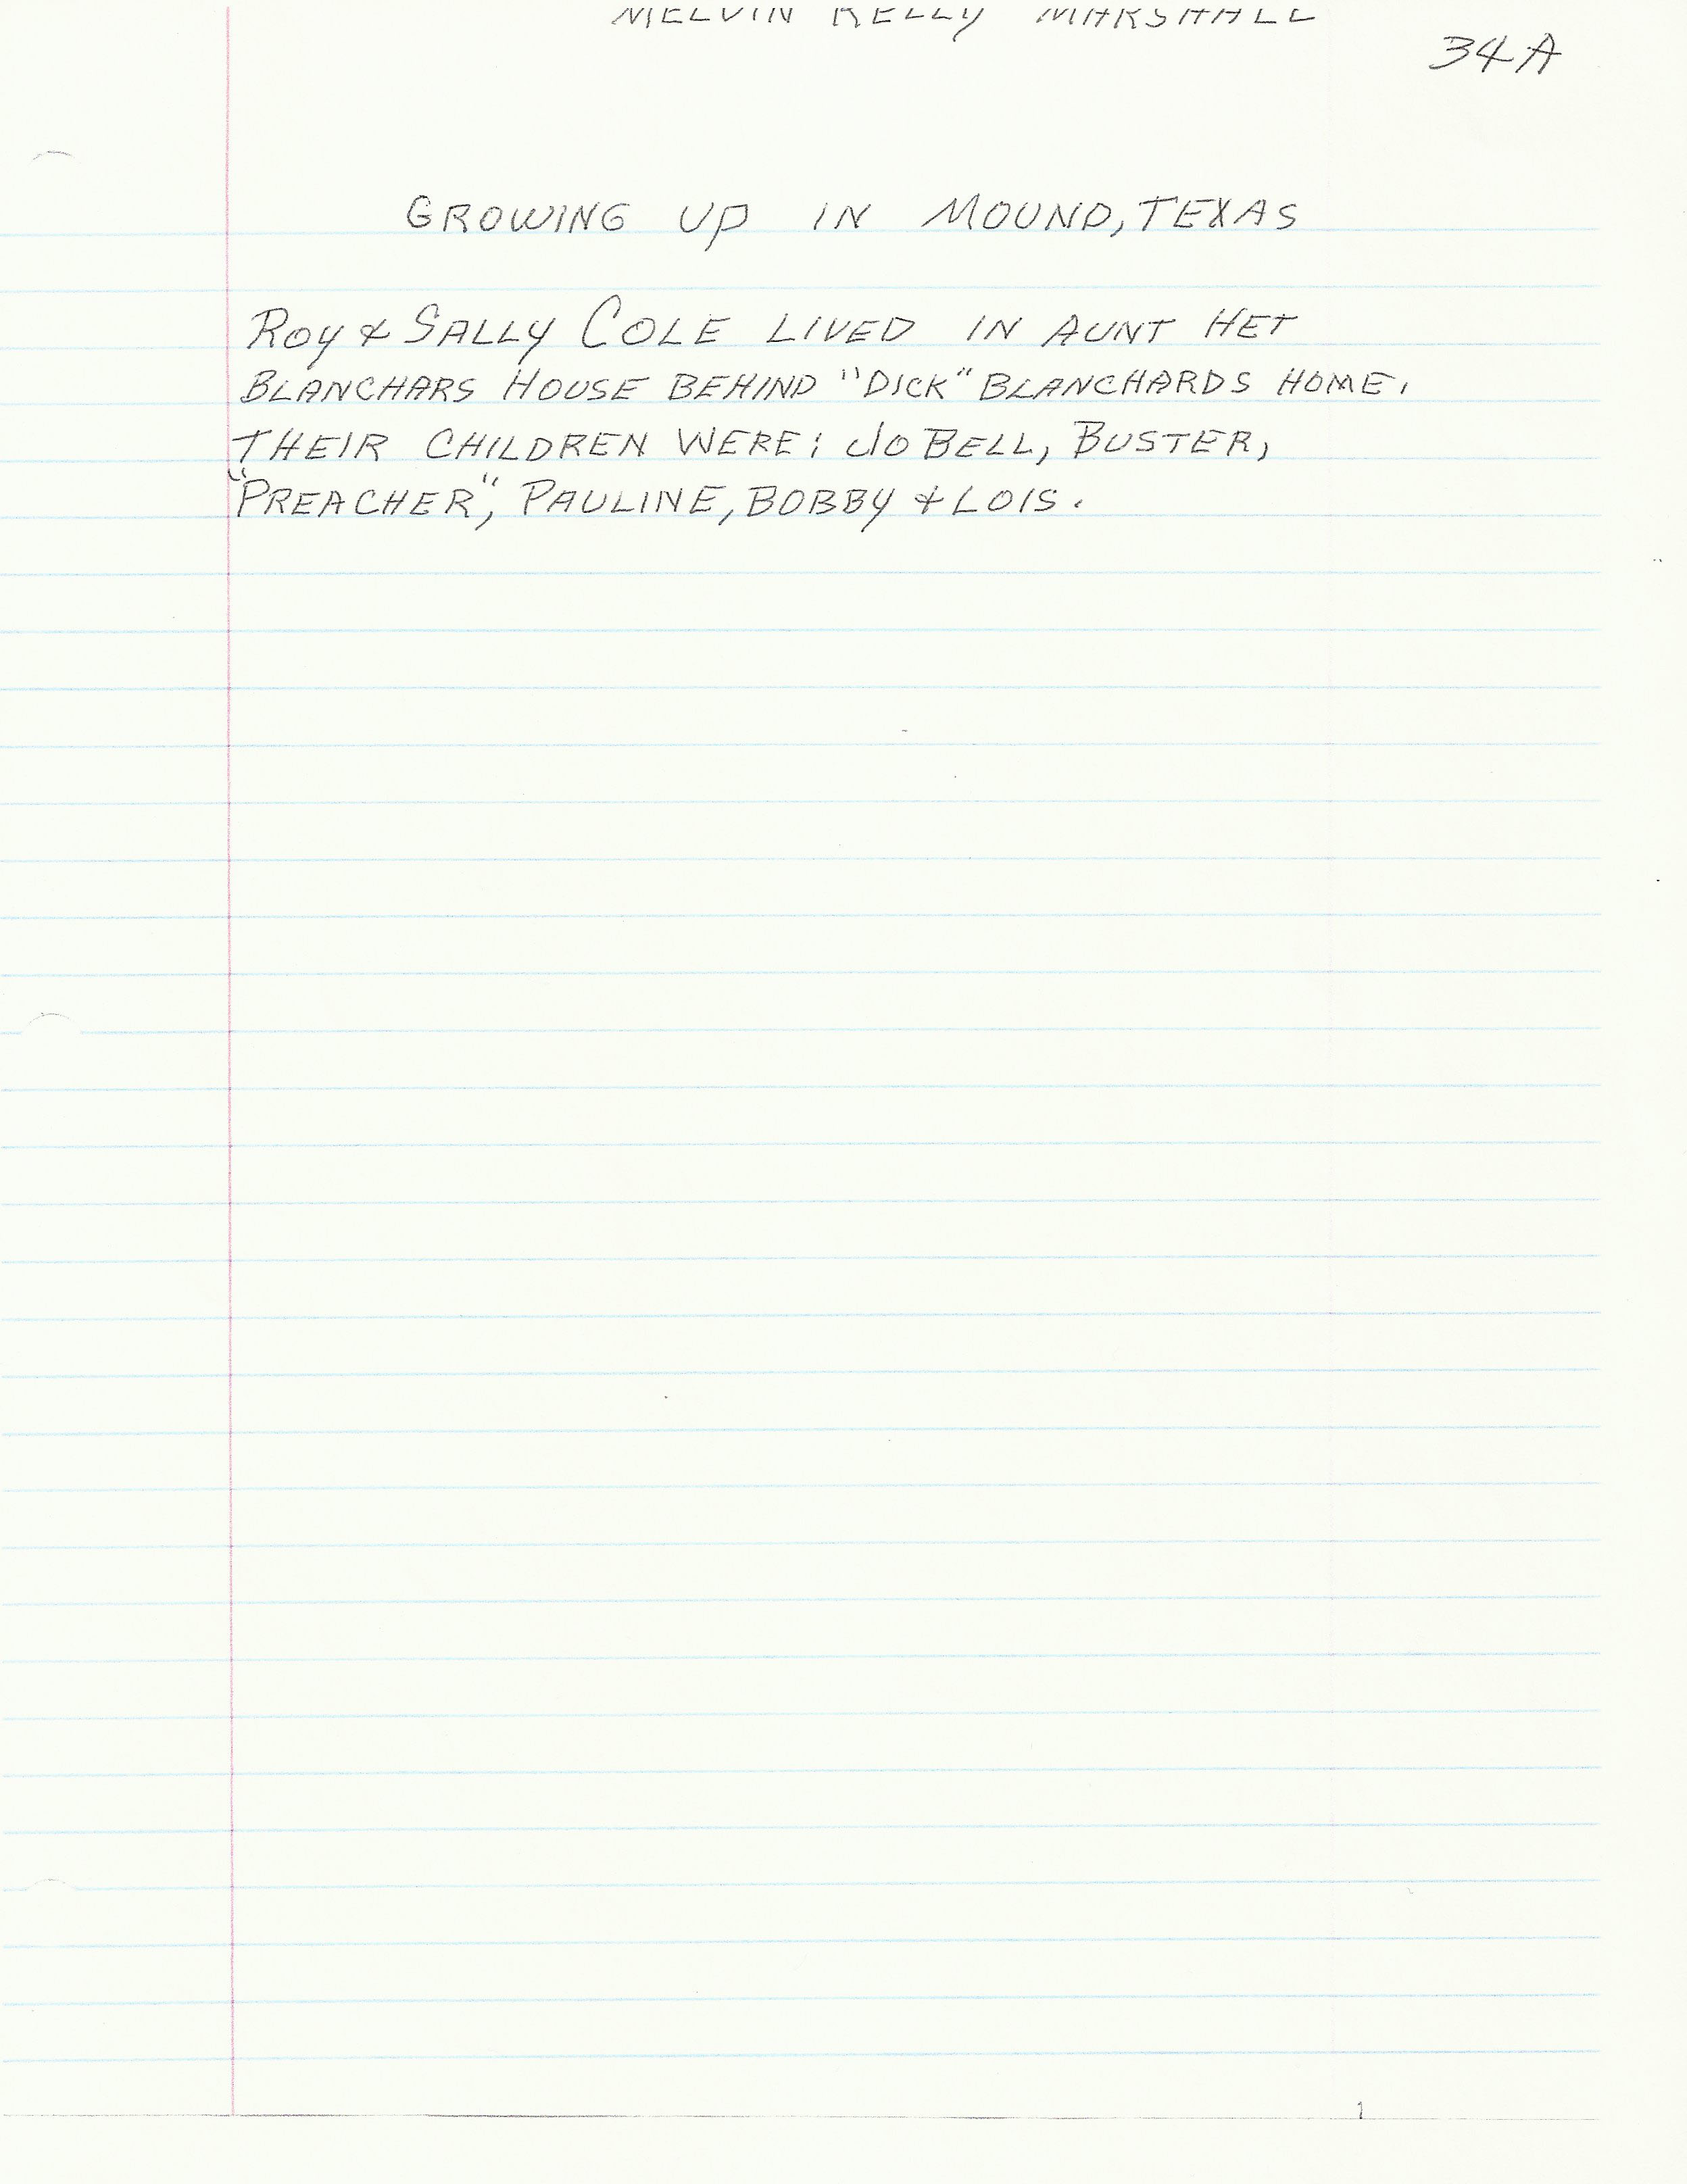 MELVIN KELLY MARSHALL
34A
GROWING UP IN MOUND, TEXAS
ROY & SALLY COLE LIVED IN AUNT HET
BLANCHARS HOUSE BEHIND "DICK" BLANCHARDS HOME.
THEIR CHILDREN WERE: JO BELL, BUSTER,
"PREACHER", PAULINE, BOBBY & LOIS.
1